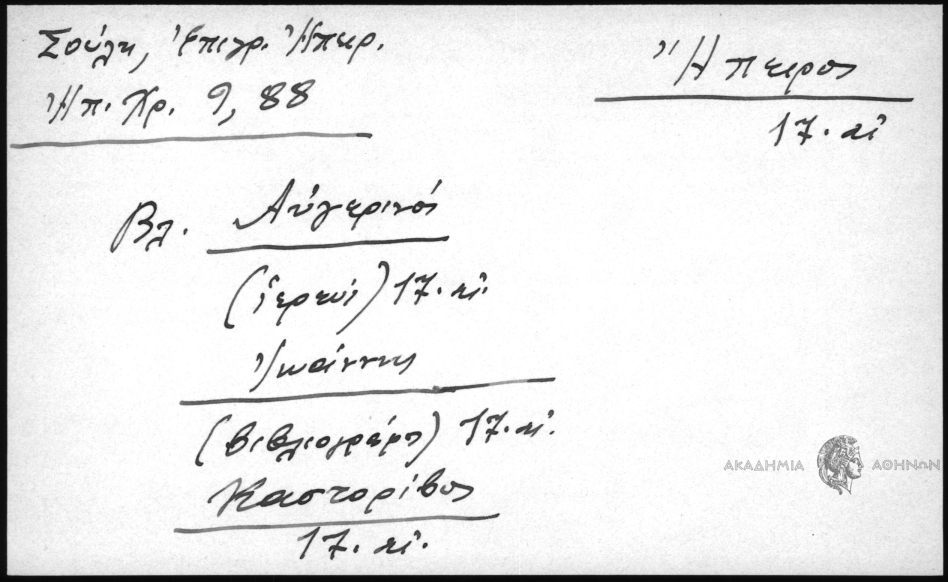 Σούλη, Ἐπιγρ. Ἠπειρ.
Ἠπ. Χρ. 9, 88
Ἤπειρος
17. αἰ
Βλ. Αὐγερινός
(ἱερεύς) 17. αἰ.
Ἰωάννης
(βιβλιογράφος) 17. αἰ.
Καστορίβος
17. αἰ.
ΑΚΑΔΗΜΙΑ ΑΘΗΝΩΝ